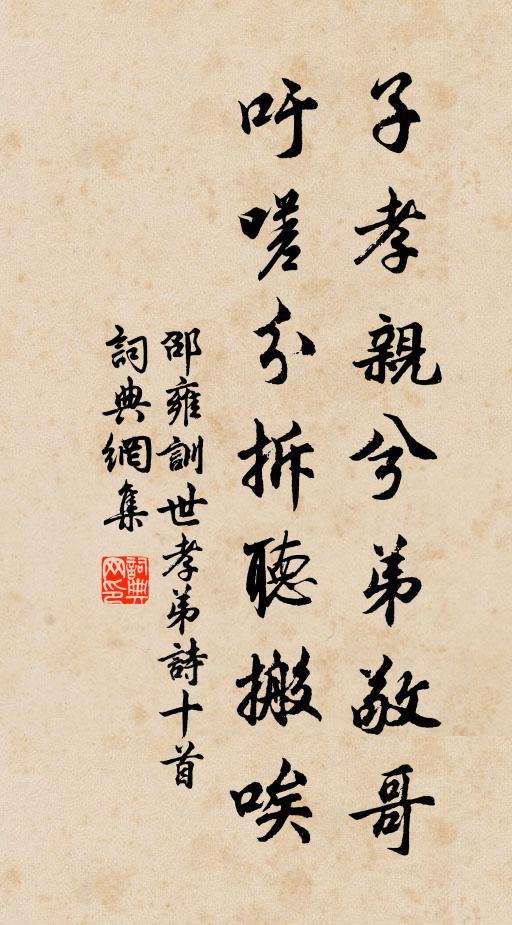 子孝親兮弟敬哥
吁嗟分拆聽搬唉
邵雍訓世孝弟詩十首
詞典網集
詞典网印